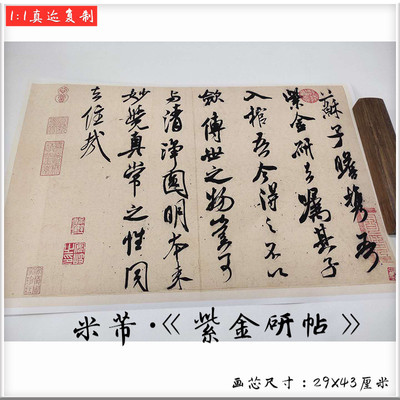 1:1真迹复制
蘇子瞻携吾
紫金研去嘱其子
入棺吾今得之不以
歛傳世之物豈可
与清净圆明本来
妙覺真常之性同
去住哉
米芾·《紫金研帖》
画芯尺寸：29X43厘米